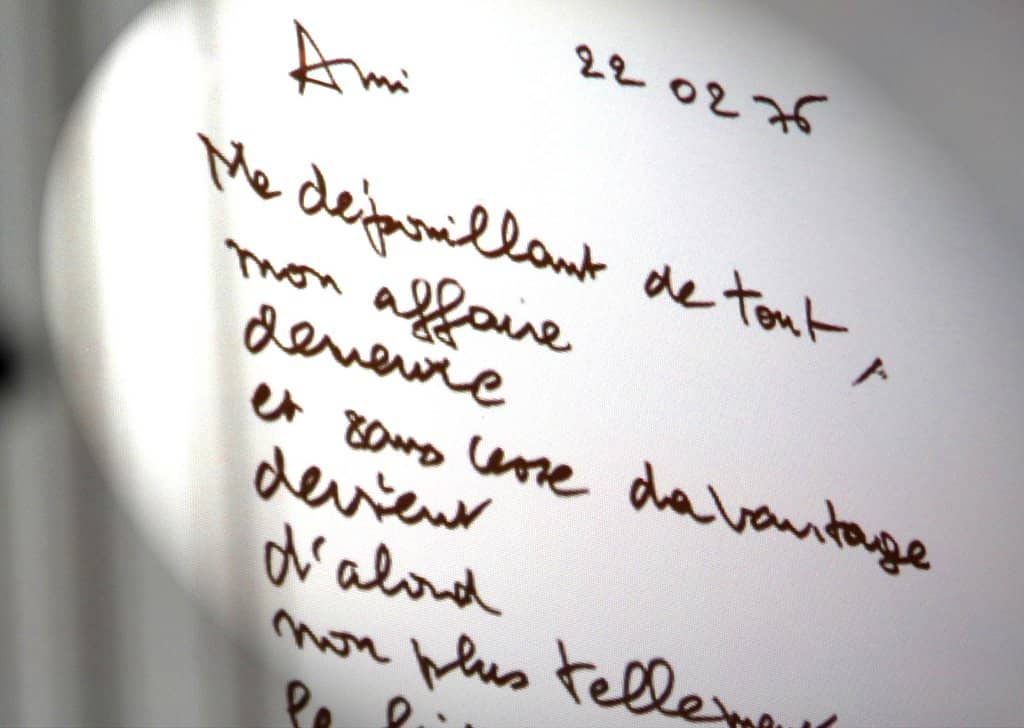 Ami 22 02 76
Me dépouillant de tout,
mon affaire
demeure
et sans cesse davantage
devient
d'abord
non plus tellement
le